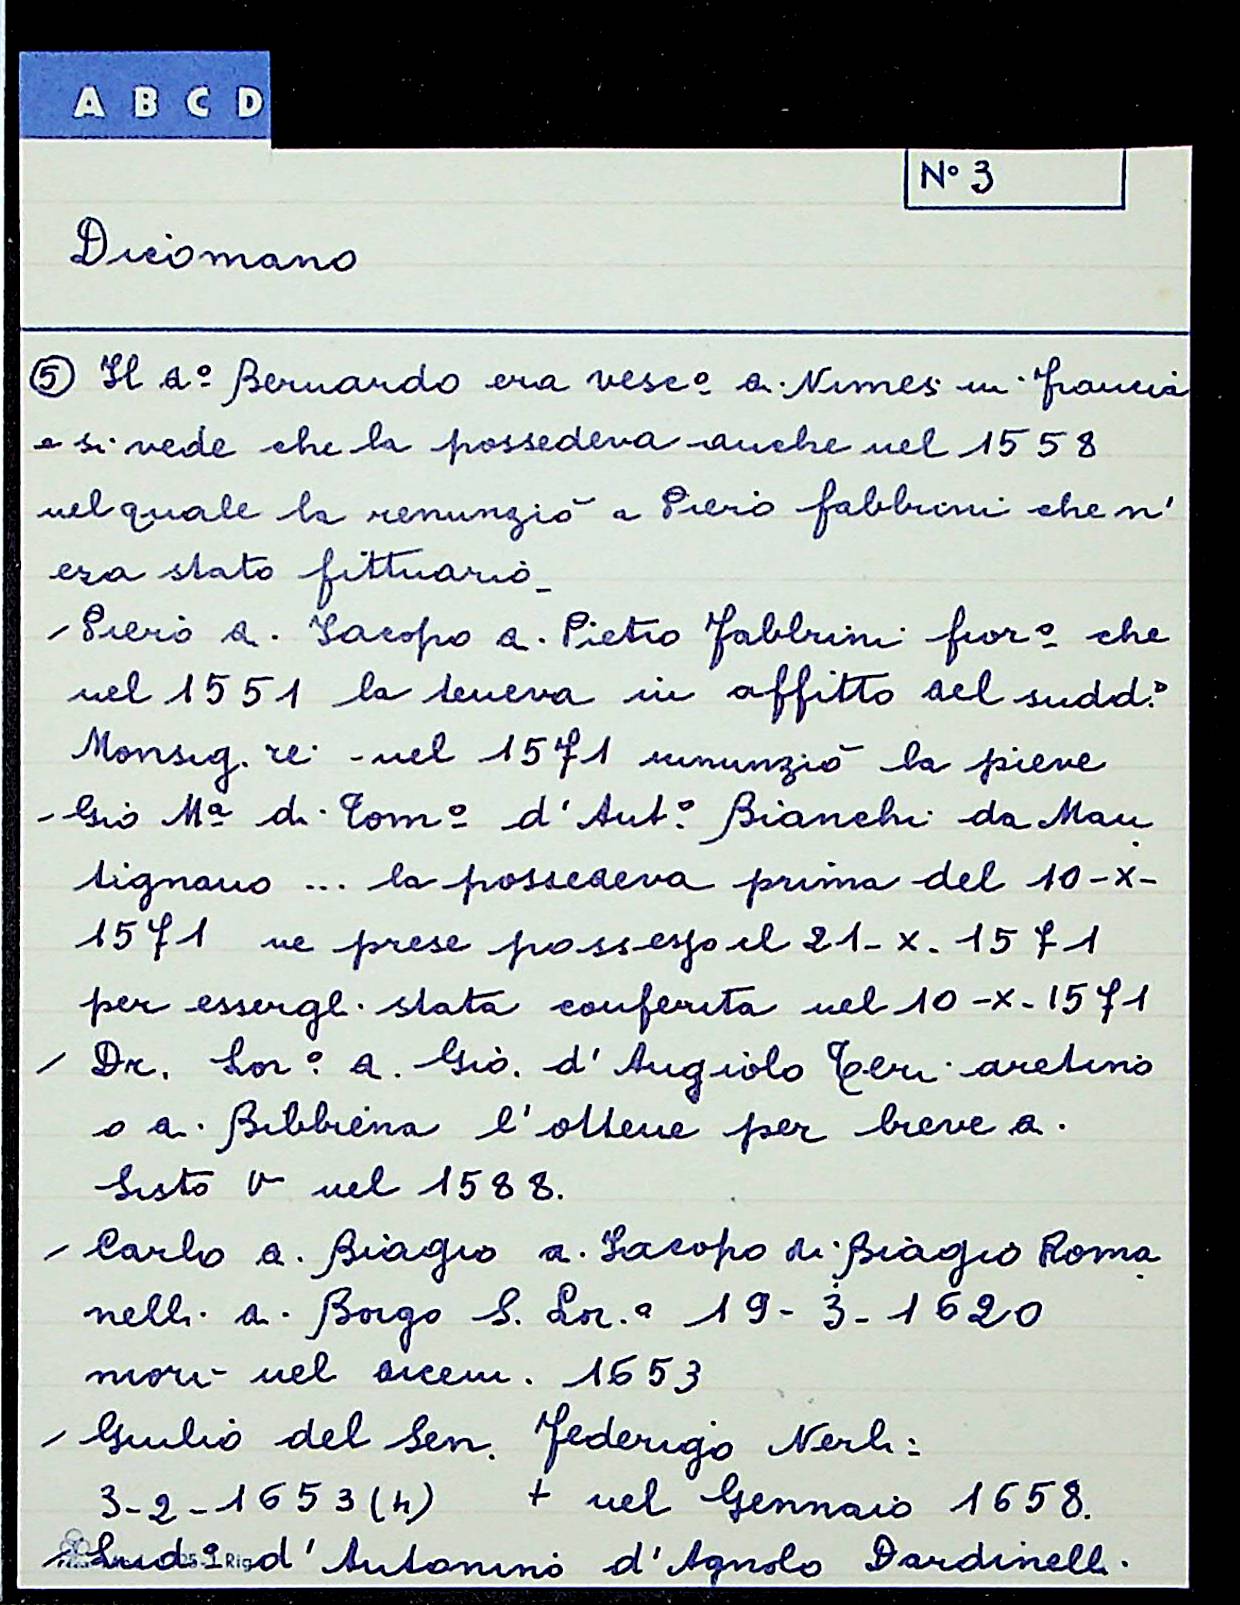 A B C D
N° 3
Dicomano
⑤ Il dº Bernardo era vescº di Nimes in Francia
e si vede che la possedeva anche nel 1558
nel quale la renunziò a Piero Fabbrini che n'
era stato fittuario_
- Piero di Iacopo di Pietro Fabbrini fiorº che
nel 1551 la teneva in affitto del sudd.º
Monsig.re - nel 1571 rinunziò la pieve
- Gio Mª di Tomº d'Ant.º Bianchi da Man
tignano ... la possedeva prima del 10-X-
1571 ne prese possesso il 21-X-1571
per essergli stata conferita nel 10-X-1571
- Dr. Lor.º di Gio. d'Angiolo aretino
o di Bibbiena l'ottene per breve di
Sisto V nel 1588.
- Carlo di Biagio di Iacopo di Biagio Roma
nelli di Borgo S. Lor.º 19-3-1620
morì nel dicem. 1653
- Giulio del Sen. Federigo Nerli:
3-2-1653(4) + nel Gennaio 1658.
- Ludº d'Antonino d'Agnolo Dardinelli